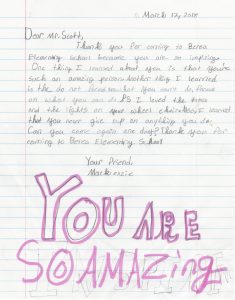 March 12, 2018
Dear Mr. Scott,
Thank you for coming to Berea
Elementary school because you are so inspiring.
One thing I learned about you is that you're
such an amazing person. Another thing I learned
is the do not focus on what you can't do, focus
on what you can do. P.S I loved the
and the lights on your wheel chair. Also, I learned
that you never give up on anything you do.
Can you come again one day? Thank you for
coming to Berea Elementary School
Your Friend,
Mackenzie
YOU ARE
SO AMAZing